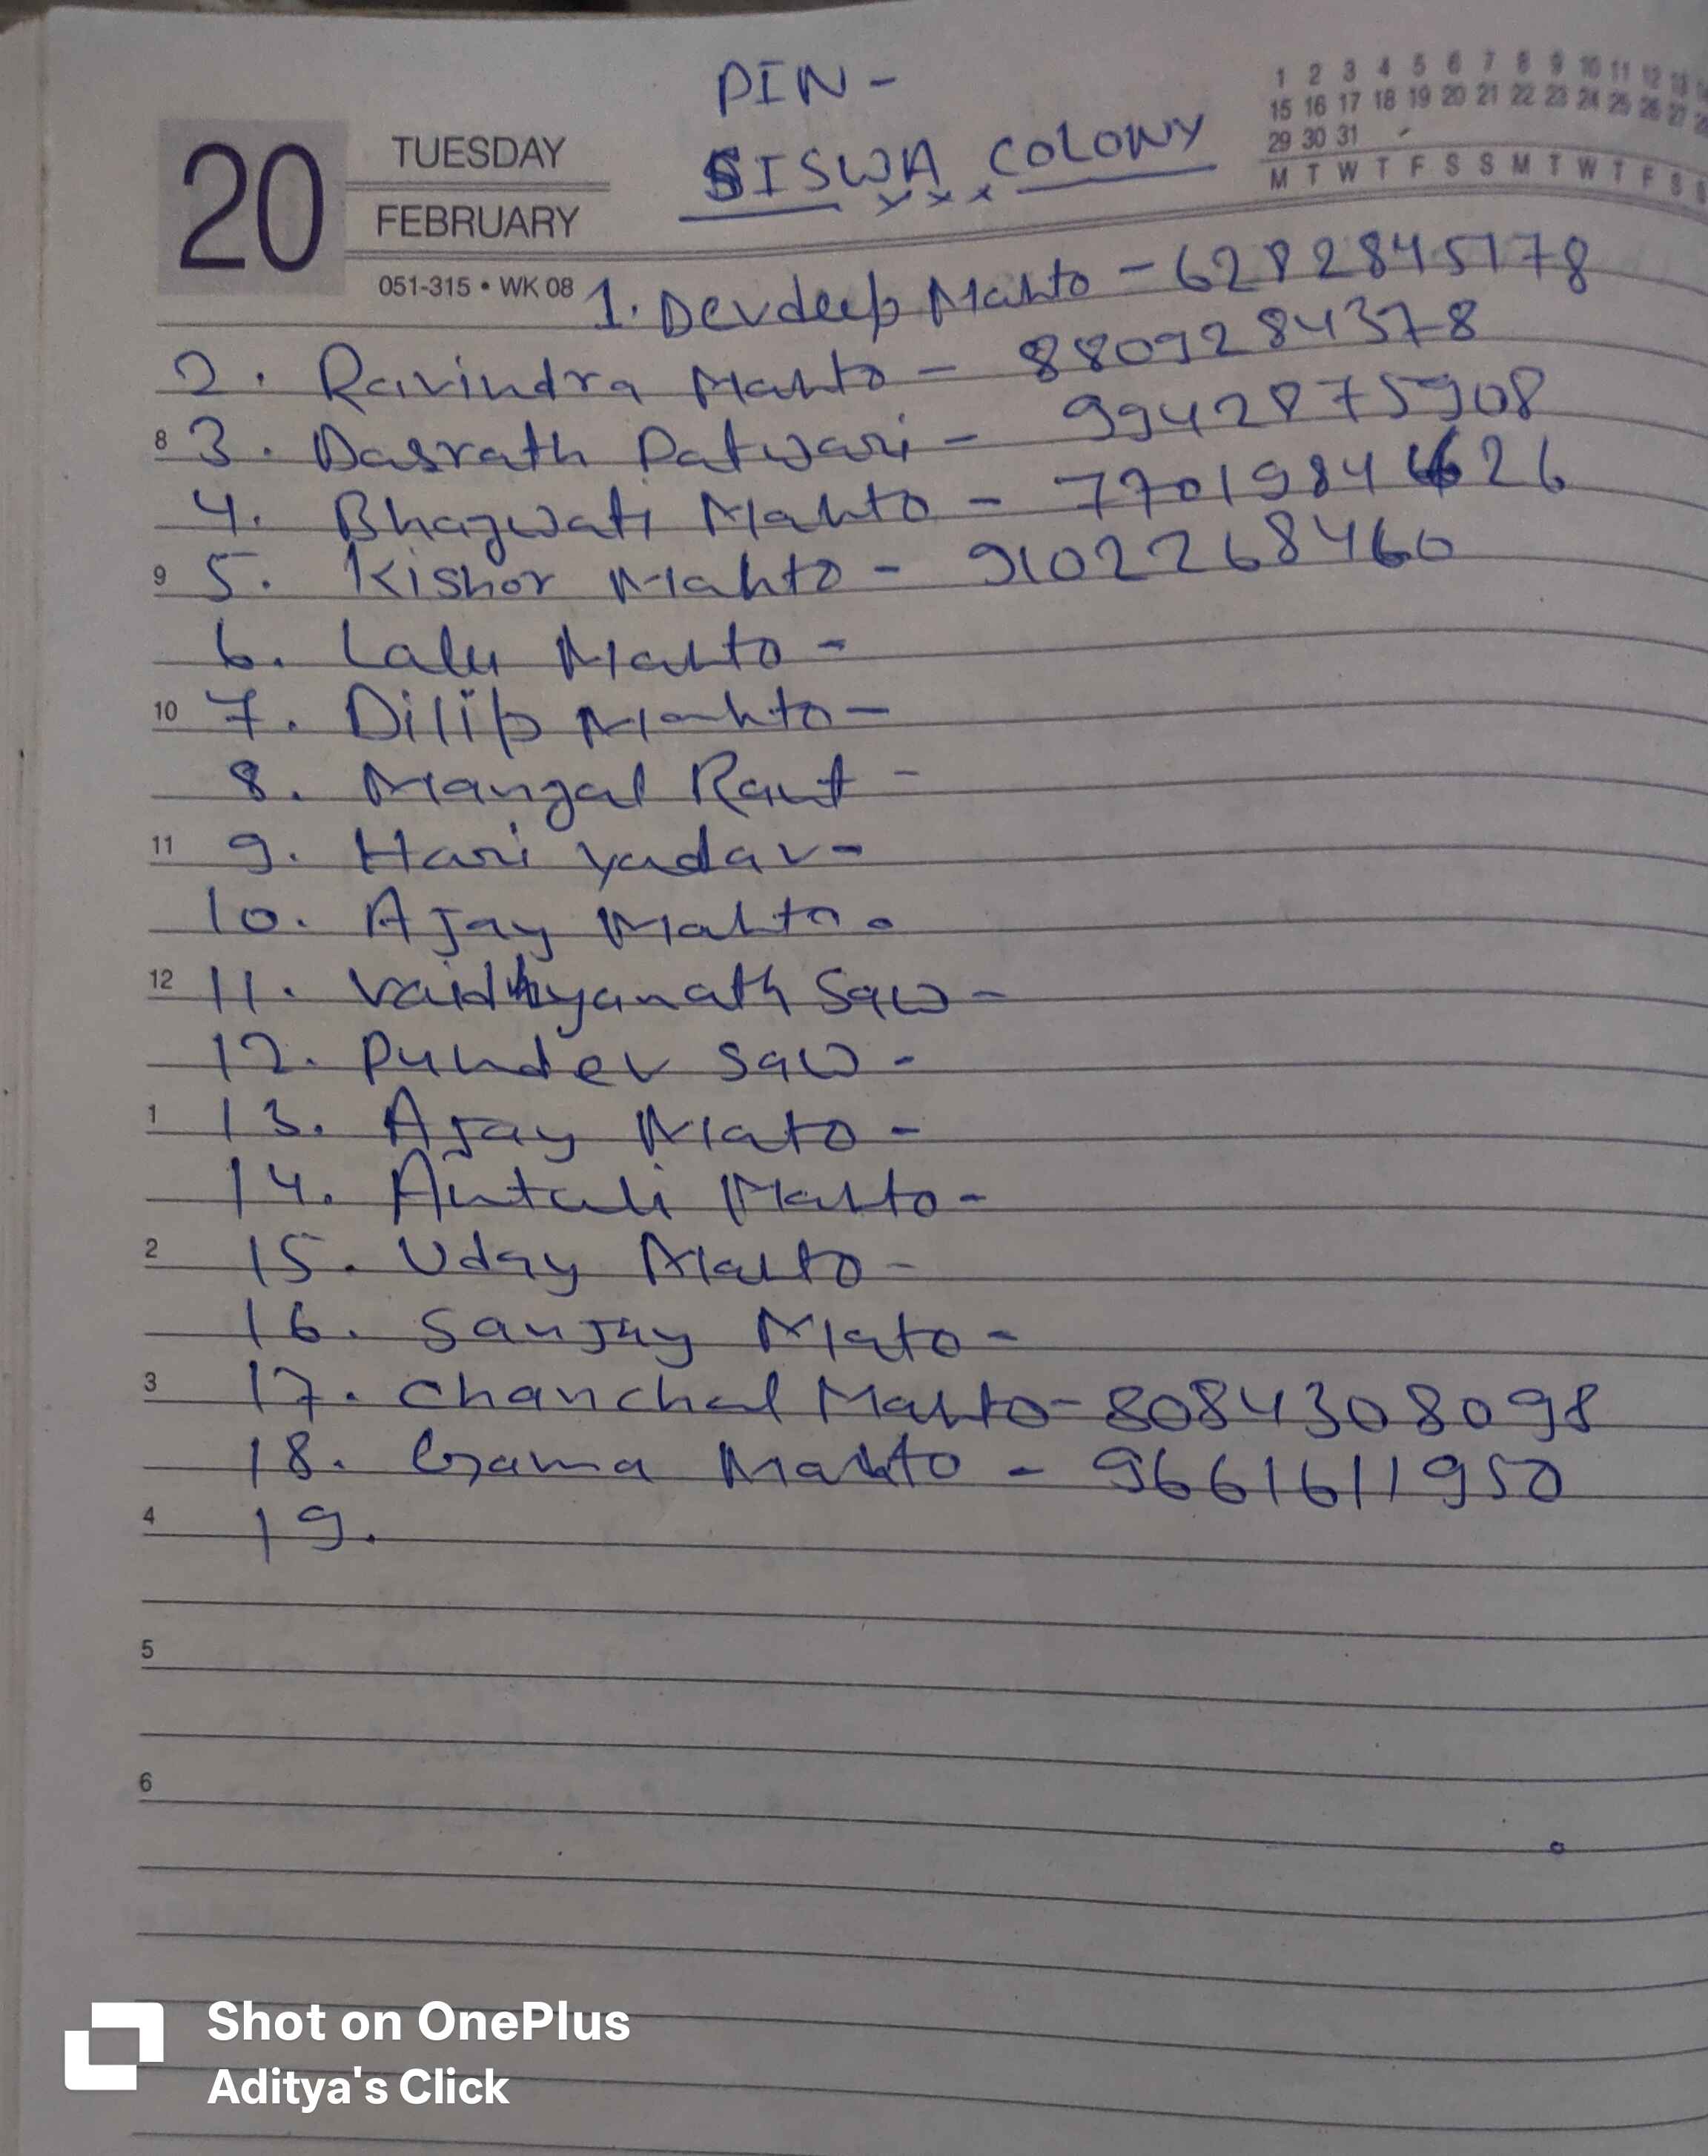 PIN -
SISWA COLONY
x x x
20
TUESDAY
FEBRUARY
051-315 • WK 08
1 2 3 4 5 6 7 8 9 10 11 12 13 14
15 16 17 18 19 20 21 22 23 24 25 26 27 28
29 30 31
M T W T F S S M T W T F S
1. Devdeep Mahto - 6282845178
2. Ravindra Mahto - 8809284378
8 3. Dasrath Patwari - 9942875908
4. Bhagwati Mahto - 7701984626
9 5. Kishor Mahto - 9102268460
6. Lalu Mahto -
10 7. Dilip Mahto -
8. Mangal Raut -
11 9. Hari yadav -
10. Ajay Mahto -
12 11. Vaidhyanath Saw -
12. Pundev Saw -
1 13. Ajay Mato -
14. Mahto -
2 15. Uday Mahto -
16. Sanjay Mato -
3 17. Chanchal Mahto - 8084308098
18. Gama Mahto - 9661611950
4 19.
5
6
Shot on OnePlus
Aditya's Click